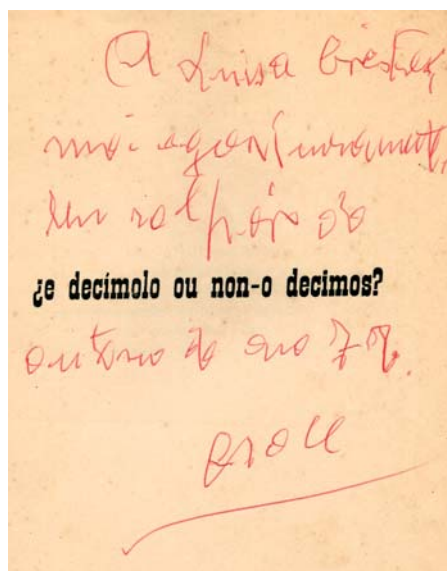 A Luisa
moi agarimosamente,
solpór do
¿e decímolo ou non-o decimos?
outono do ano